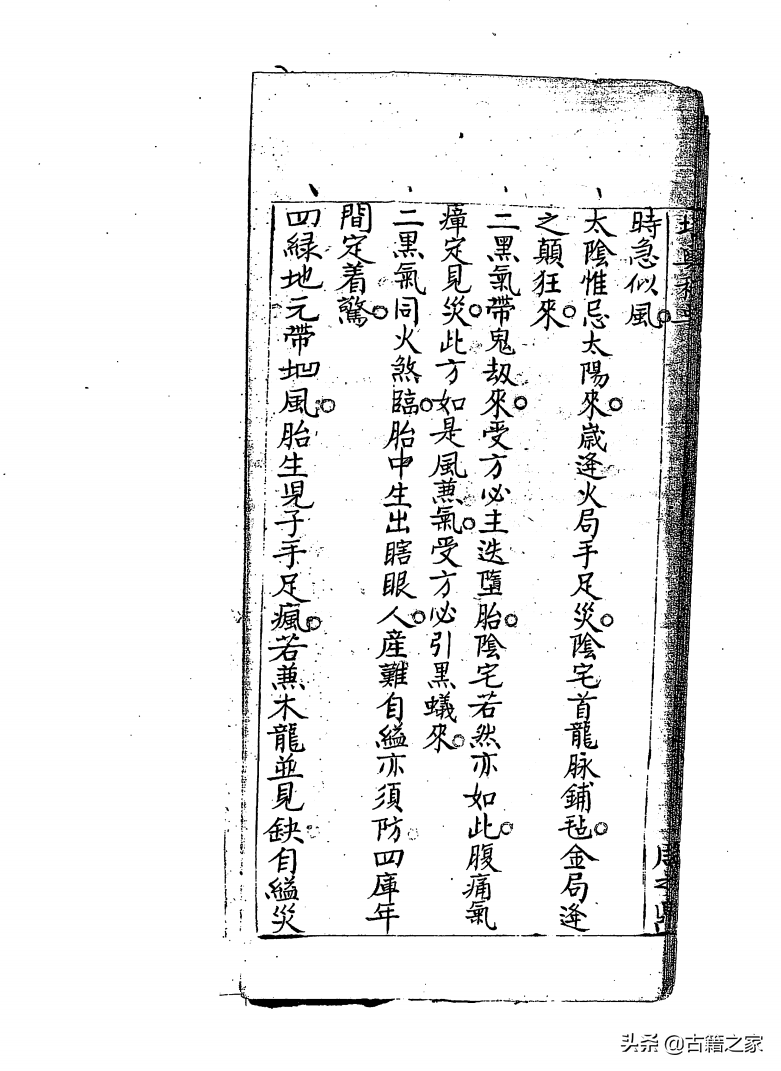 時急似風。
太陰惟忌太陽來。歲逢火局手足災。陰宅首龍脉鋪毡。金局逢
之顛狂來。
二黑氣帶鬼刼來。受方必主迭墮胎。陰宅若然亦如此。腹痛氣
瘴定見災。此方如是風蕪氣。受方必引黑蟻來。
二黑氣同火煞臨。胎中生出瞎眼人。産難自縊亦須防。四庫年
間定着驚。
四緑地元帶地風。胎生児子手足瘋。若蕪木龍並見缺。自縊災
头条 @古籍之家